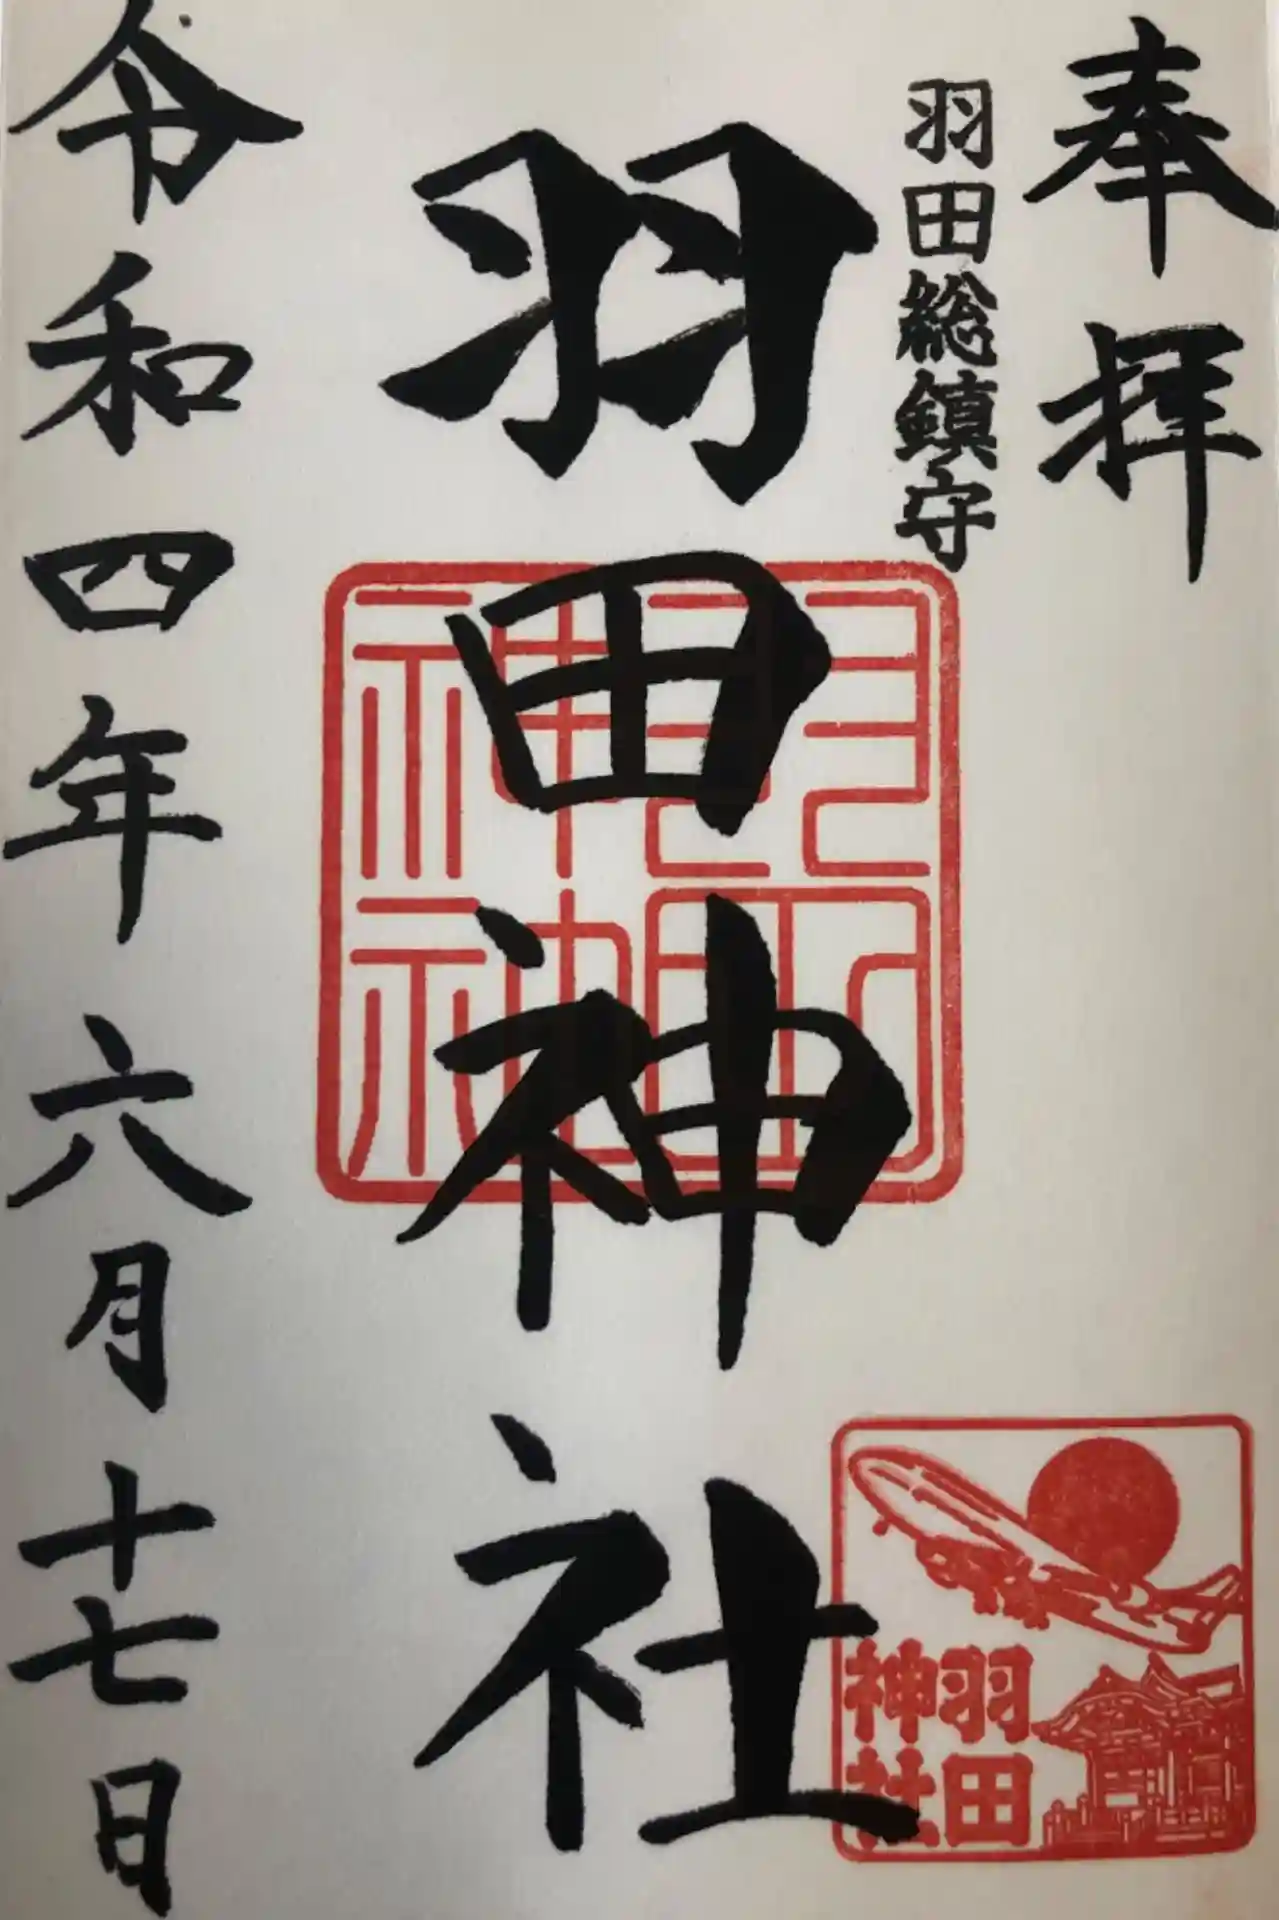 奉拝
羽田総鎮守
羽田神社
令和四年六月十七日
羽田
神社